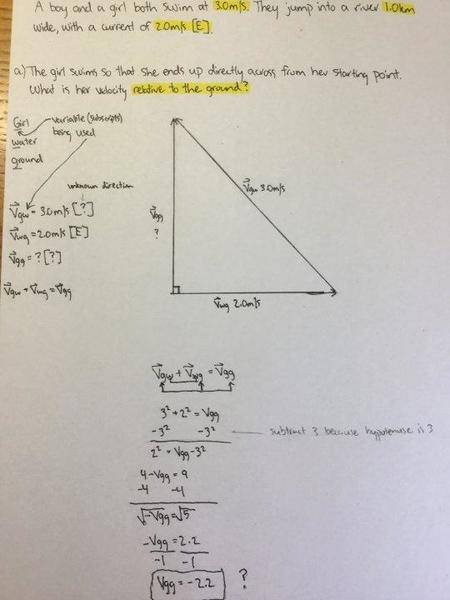 A boy and a girl both swim at 3.0m/s. They jump into a river 1.0km
wide, with a current of 2.0m/s [E].
a) The girl swims so that she ends up directly across from her starting point.
What is her velocity relative to the ground?
Girl
water
ground
variable (subscripts)
being used
unknown direction
V⃗gw = 3.0m/s [?]
V⃗wg = 2.0m/s [E]
V⃗gg = ? [?]
V⃗gw + V⃗wg = V⃗gg
V⃗gg
?
V⃗gw 3.0m/s
V⃗wg 2.0m/s
V⃗gw + V⃗wg = V⃗gg
3² + 2² = Vgg
-3² -3²
subtract 3 because hypotenuse is 3
2² = Vgg - 3²
4 - Vgg = 9
-4 -4
√-Vgg = √5
-Vgg = 2.2
-1 -1
Vgg = -2.2 ?